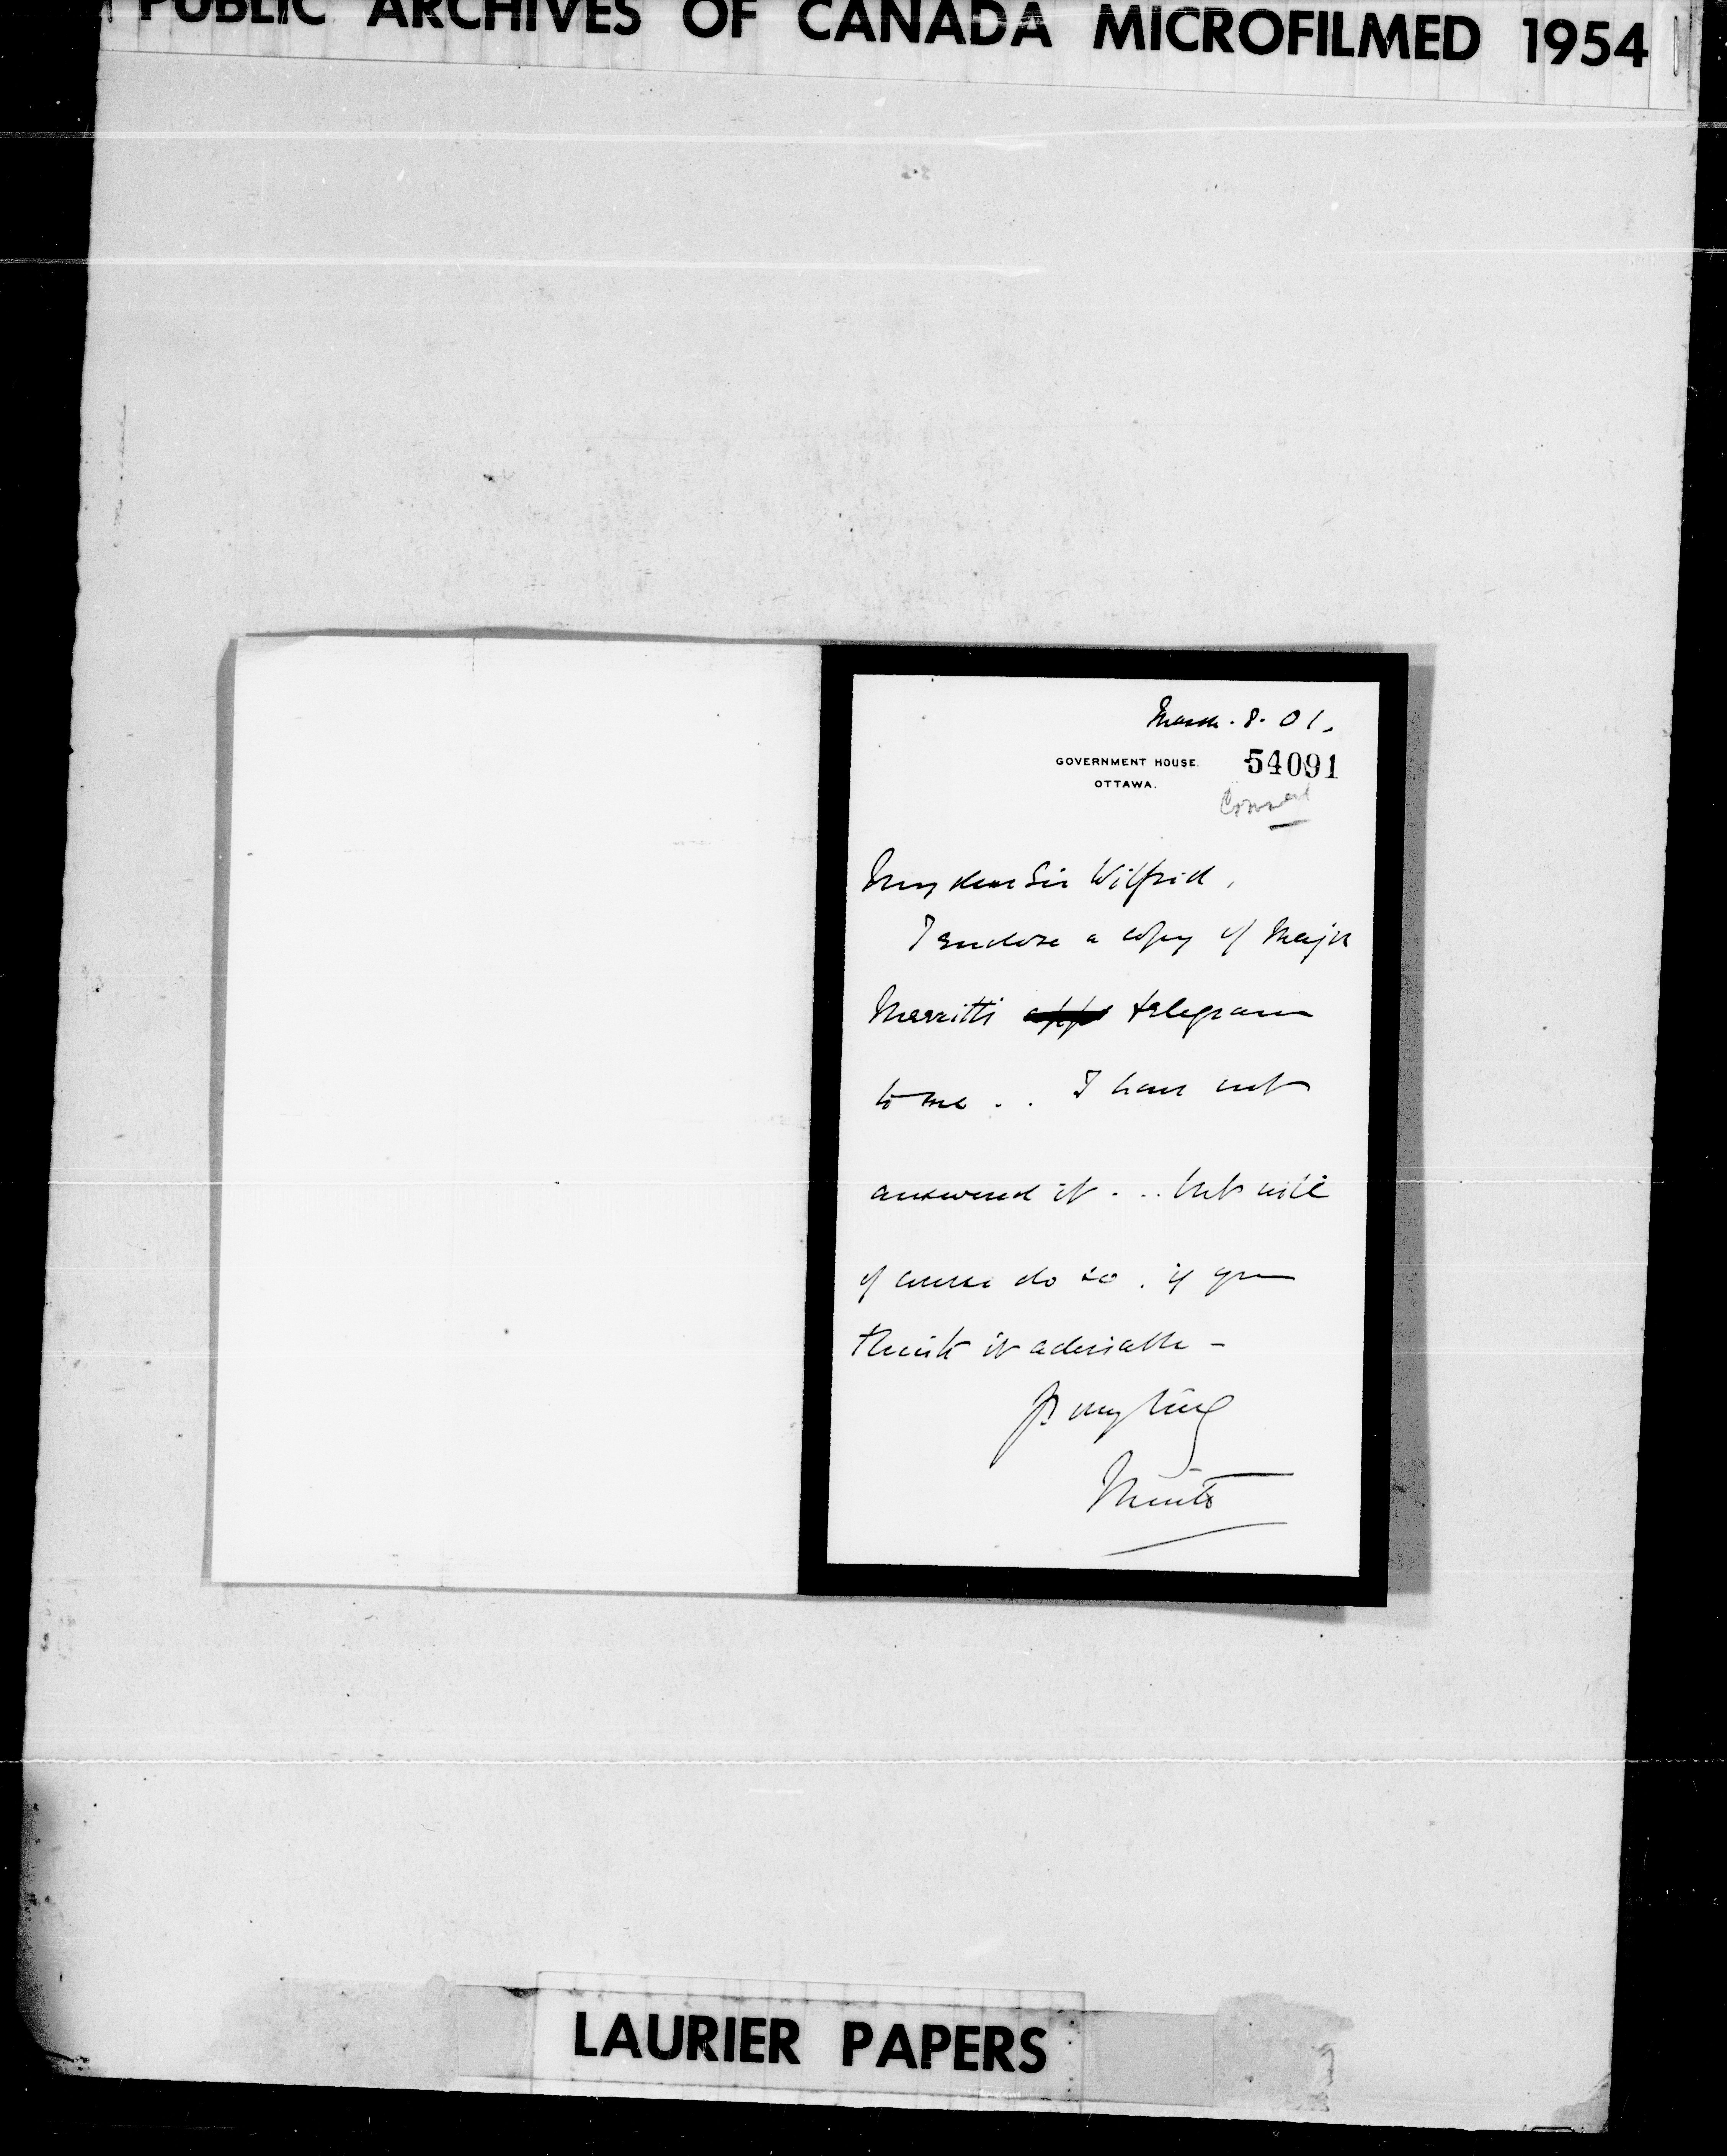 PUBLIC ARCHIVES OF CANADA MICROFILMED 1954
March. 8. 01.
GOVERNMENT HOUSE.
OTTAWA.
54091
My dear Sir Wilfrid,
I enclose a copy of Major
Merritts app telegram
to me . . I have not
answered it . .. but will
of course do so . if you
think it advisable -
Yrs very truly
Minto
LAURIER PAPERS